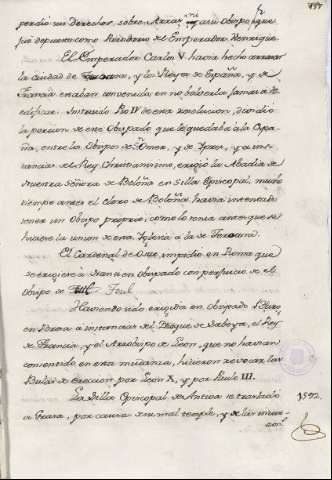 perdio sus derechos, sobre Arras, y asi su Obispo, que
fue depuesto como Reindero de el Emperador Henrique.
El Emperador Carlos V. havia hecho arruinar
la ciudad de Teruana, y los Reyes de España, y de
Francia estaban convenidos en no bolverla jamas à re
edificar. Instruido Pio IV de esta resolucion, dividiò
la porcion de este Obispado que le quedaba à la Espa
ña, entre los Obispos de S. Omer, y de Ypres, y a ins
tancias de el Rey Christianisimo, erigiò la Abadia de
Nuestra Señora de Boloña en Silla Episcopal, mucho
tiempo antes el clero de Boloña havia intentado
tener un Obispo proprio, como lo tenia antes que se
huviese la union de esta Iglesia à la de Teruana.
El Cardenal de Ossat impidio en Roma que
se erigiese à Nanci en Obispado con perjuicio de el
Obispo de Toul.
Haviendo sido erigida en Obispado Burg
en Bresa à instancias del Duque de Saboya, el Rey
de Francia, y el Arzobispo de Leon, que no havian
consentido en esta mudanza, hicieron revocar las
Bulas de ereccion por Leon X, y por Paulo III.
La Silla Episcopal de Antiva se trasladò 1592.
à Grasa, por causa de su mal temple, y de las incur
sion.